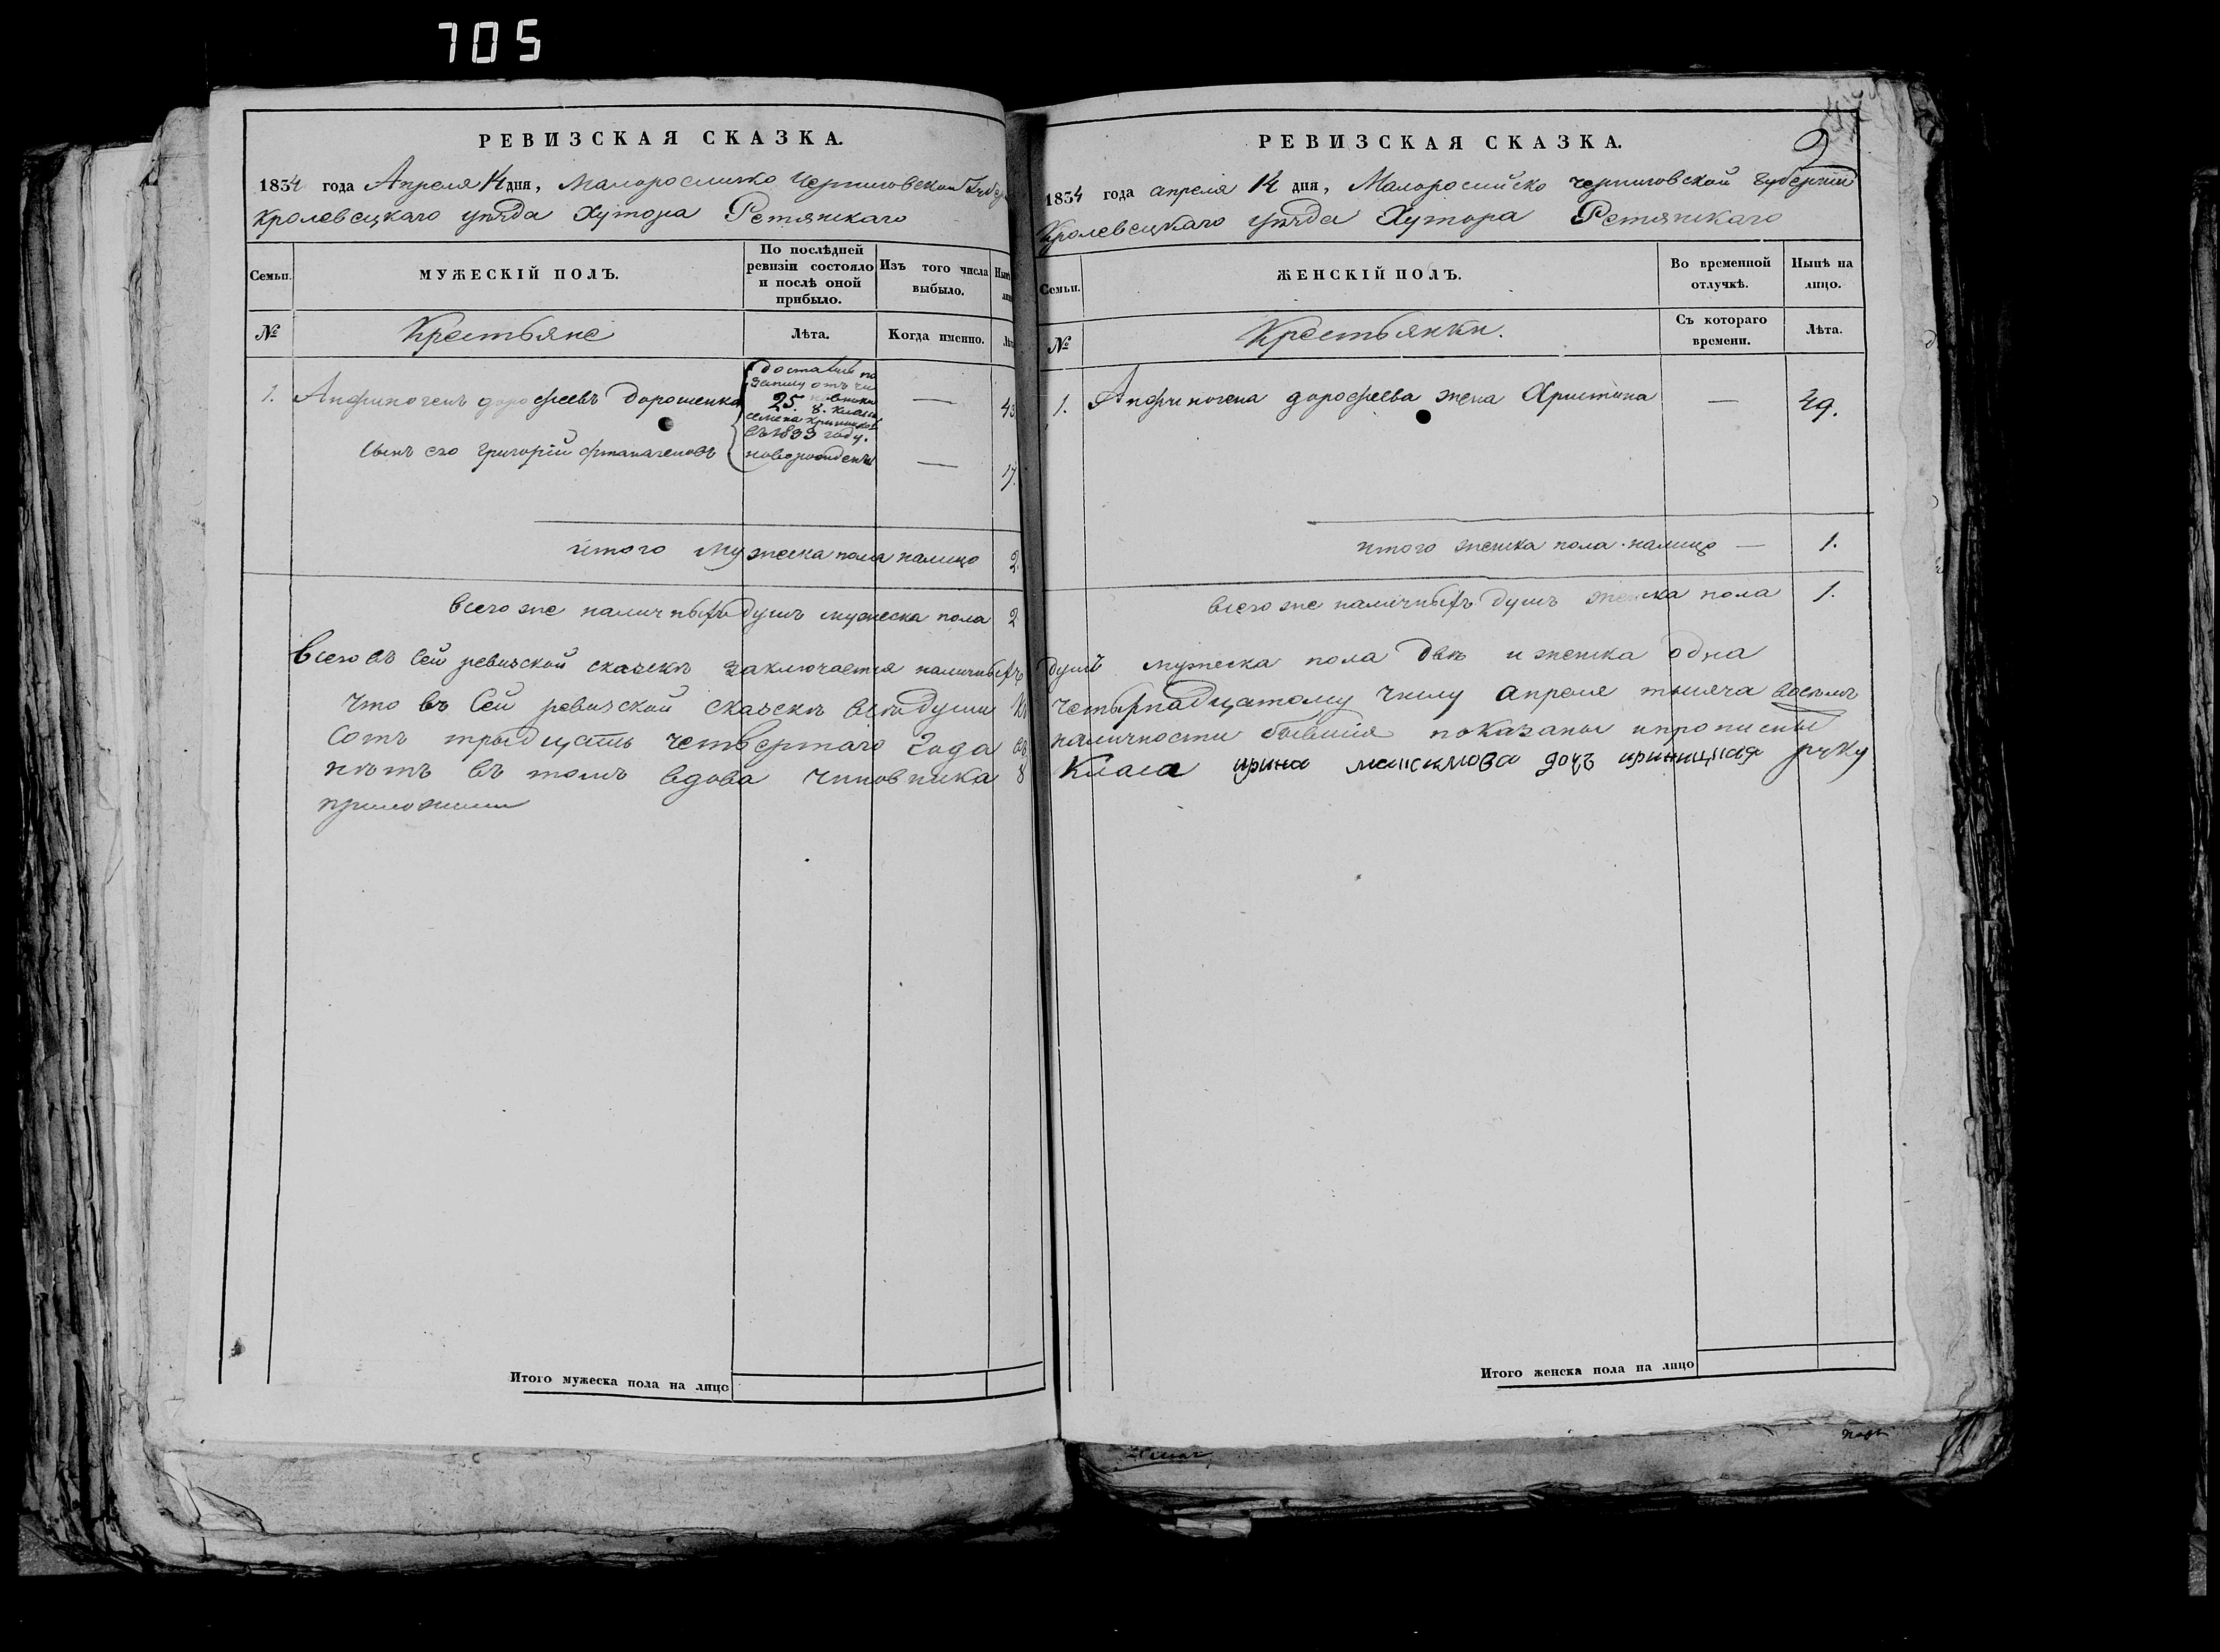 705
РЕВИЗСКАЯ СКАЗКА.
1834 года Апреля 14 дня, Малоросийско Черниговской Губер
Кролевецкаго уѣзда Хутора Ретяжскаго
Семьи.
МУЖЕСКІЙ ПОЛЪ.
По послѣдней
ревизіи состояло
и послѣ оной
прибыло.
Изъ того числа
выбыло.
№
Крестьяне
Лѣта.
Когда именно.
1. Анфиногенъ дорофеевъ Дорошенко
достался по
запису отъ
25.
8. класа
семена
въ 1833 году.
—
43
сынъ его григорій
новорожденъ
—
17.
итого мужеска пола налицо 2.
всего же наличныхъ душъ мужеска пола 2
Всего въ сей ревизской сказкѣ заключается наличныхъ
Что въ сей ревизской сказкѣ всѣ души къ
сотъ тридцать четвертаго года въ
нѣтъ въ томъ вдова чиновника 8
приложила
РЕВИЗСКАЯ СКАЗКА.
2
1834 года апреля 14 дня, Малоросийско черниговской губерніи
Кролевецкаго уѣзда Хутора Ретяжскаго
Семьи.
ЖЕНСКІЙ ПОЛЪ.
Во временной
отлучкѣ.
Нынѣ на
лицо.
№
Крестьянки.
Съ котораго
времени.
Лѣта.
1. Анфиногена дорофеева жена Христина — 49.
итого женска пола налицо — 1.
всего же наличныхъ душъ женска пола 1.
душъ мужеска пола двѣ и женска одна
четырнадцатому числу апреля тысяча восемъ
наличности бывшія показаны и прописны
класа ирина максимова дочъ криницкая руку
Итого мужеска пола на лицо
Итого женска пола на лицо